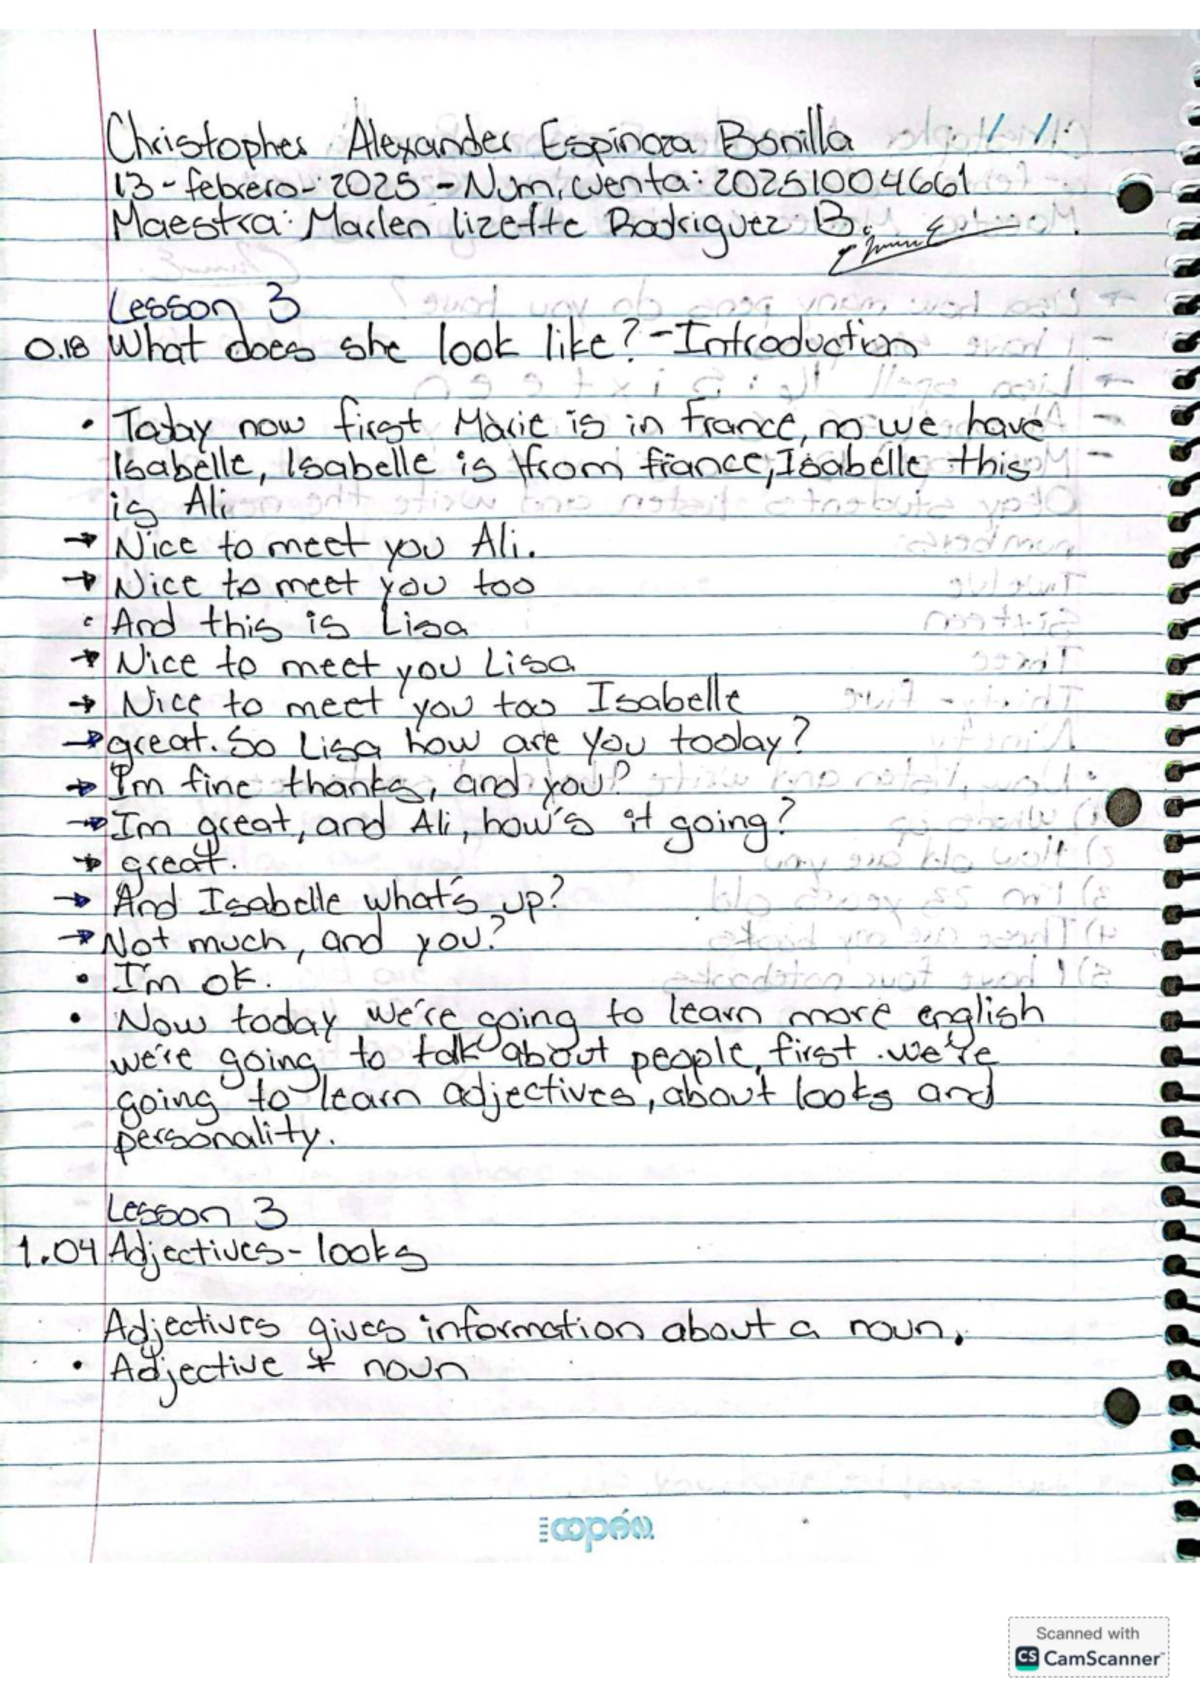 Christopher Alexander Espinoza Bonilla
13-febrero-2025-Num.cuenta:202510004661
Maestra: Marlen lizette Rodriguez B.
Lesson 3
0.18 What does she look like?-Introduction
• Today now first Marie is in France, no we have
Isabelle, Isabelle is from france, Isabelle this
is Ali
→ Nice to meet you Ali.
→ Nice to meet you too
• And this is Lisa
→ Nice to meet you Lisa
→ Nice to meet you too Isabelle
→ great. So Lisa how are you today?
→ I'm fine thanks, and you?
→ Im great, and Ali, how's it going?
→ great.
→ And Isabelle what's up?
→ Not much, and you?
• I'm ok.
• Now today we're going to learn more english
we're going to talk about people, first we're
going to learn adjectives, about looks and
personality.
Lesson 3
1.04 Adjectives-looks
Adjectives gives information about a noun.
• Adjective + noun
copán
Scanned with
CS CamScanner